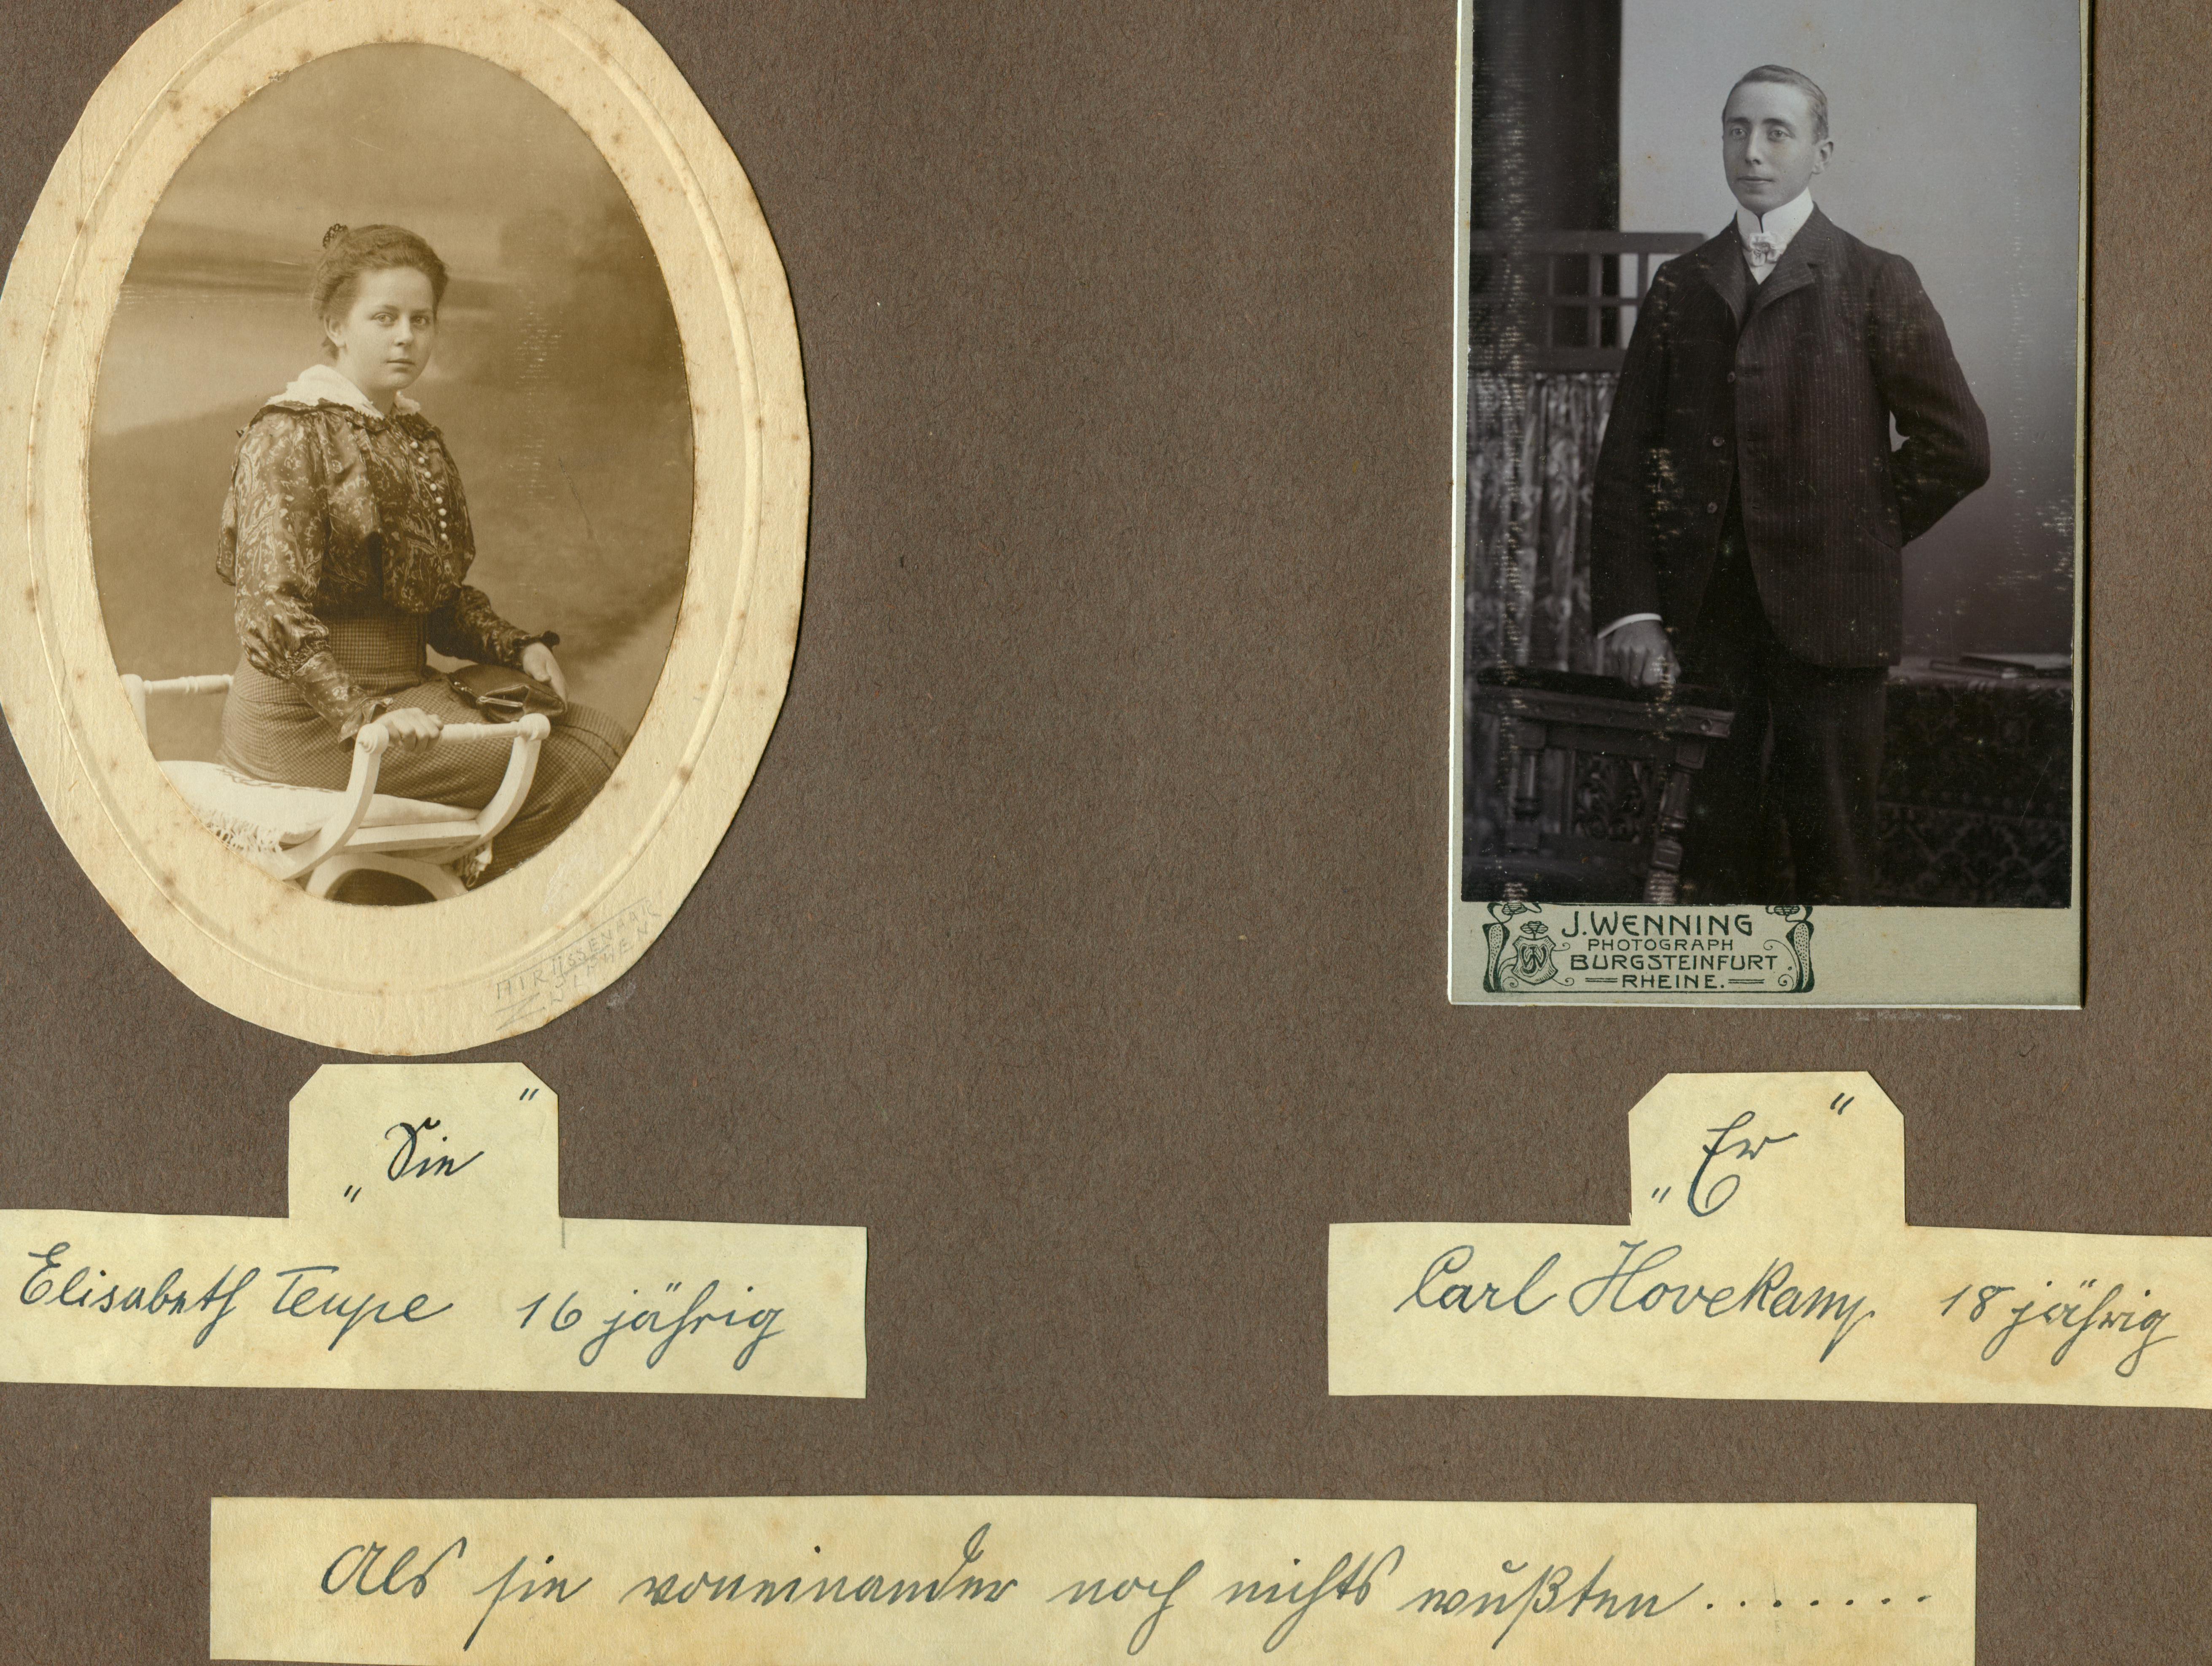 ZUTPHEN
J. WENNING
PHOTOGRAPH
BURGSTEINFURT
RHEINE.
„Sie"
Elisabeth Teupe 16 jährig
„Er"
Carl Hovekamp 18 jährig
Als sie voneinander noch nichts wußten.......